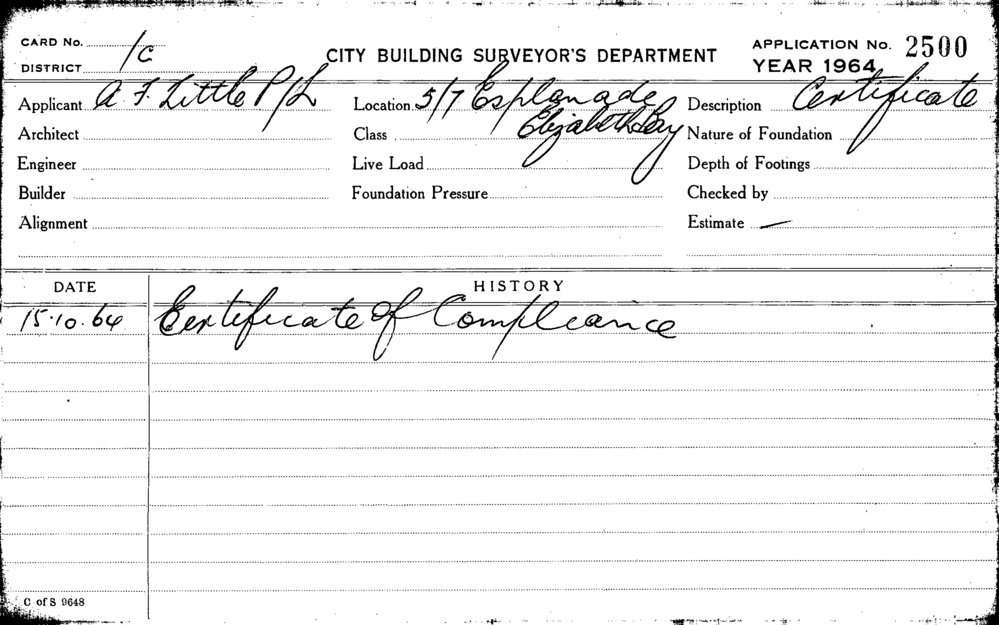 CARD No.
DISTRICT 1c
CITY BUILDING SURVEYOR'S DEPARTMENT
APPLICATION No. 2500
YEAR 1964
Applicant A F. Little P/L
Location 5/7 Esplanade
Elizabeth Bay
Description Certificate
Architect
Class
Nature of Foundation
Engineer
Live Load
Depth of Footings
Builder
Foundation Pressure
Checked by
Alignment
Estimate —
DATE
HISTORY
15.10.64 Certificate of Compliance
C of S 9648